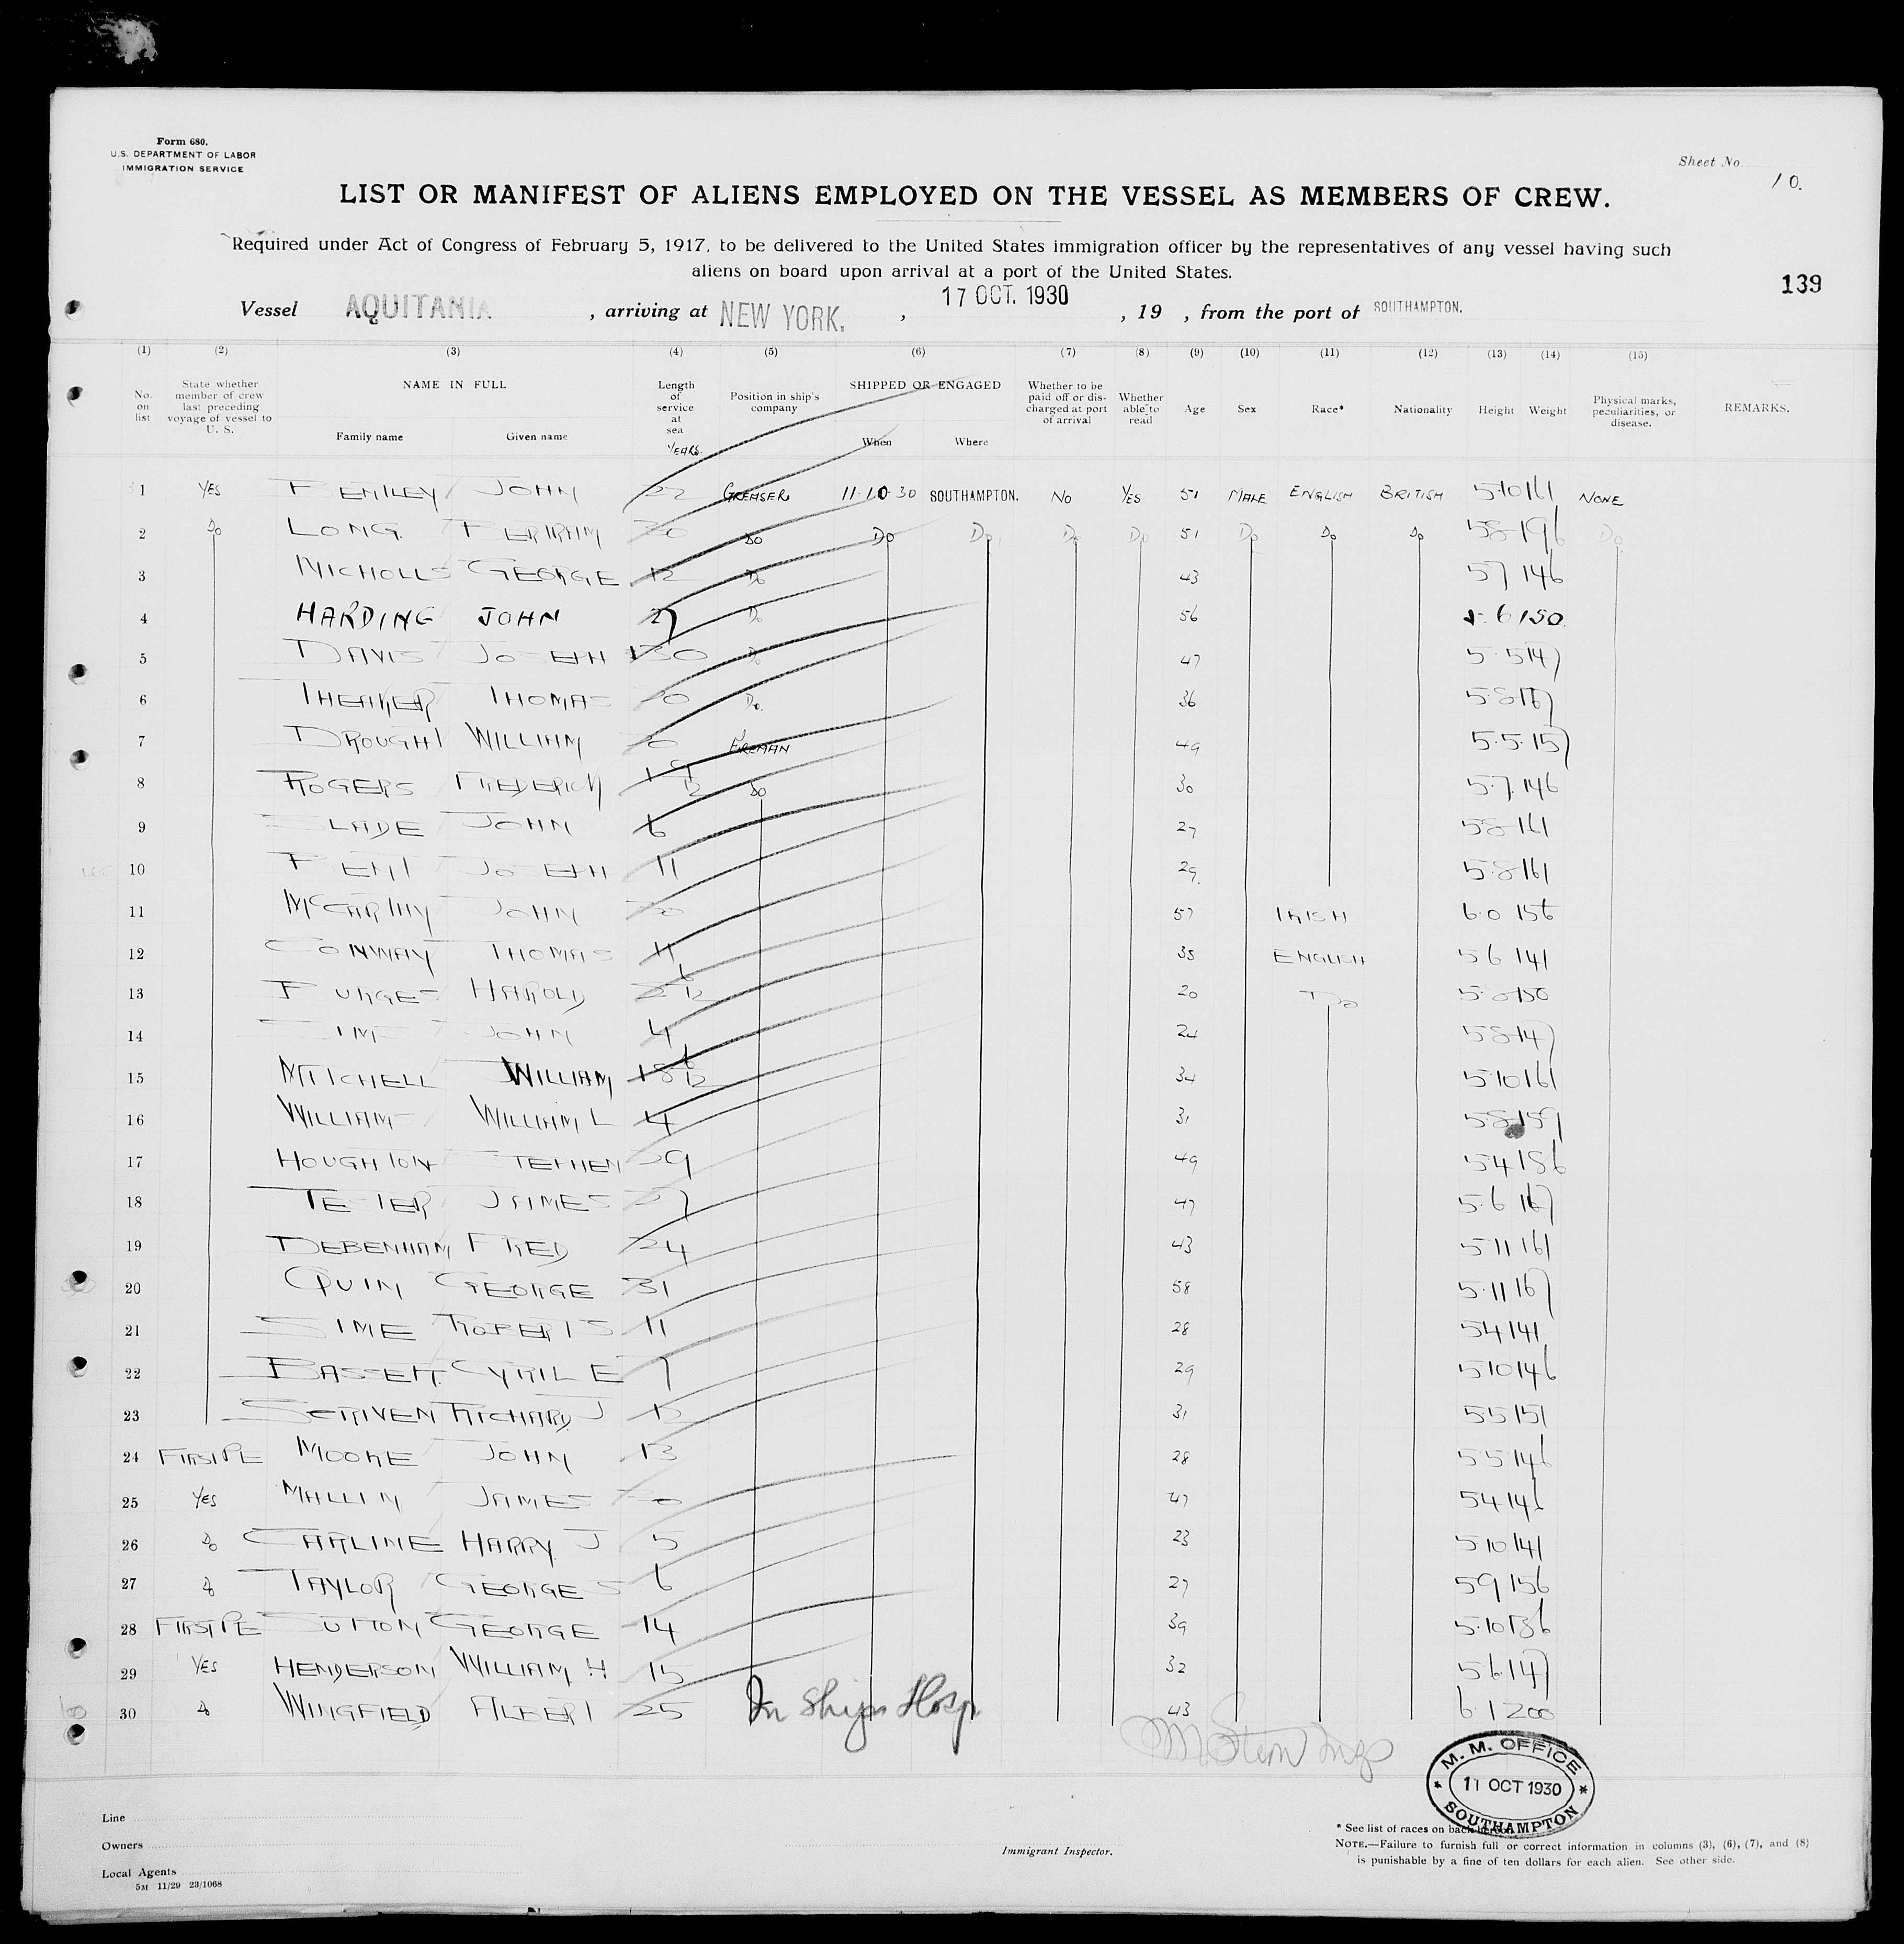 Form 680.
U.S. DEPARTMENT OF LABOR
IMMIGRATION SERVICE
Sheet No 10.
LIST OR MANIFEST OF ALIENS EMPLOYED ON THE VESSEL AS MEMBERS OF CREW.
Required under Act of Congress of February 5, 1917, to be delivered to the United States immigration officer by the representatives of any vessel having such
aliens on board upon arrival at a port of the United States.
139
Vessel AQUITANIA , arriving at NEW YORK. , 17 OCT. 1930 , 19 , from the port of SOUTHAMPTON.
(1) (2) (3) (4) (5) (6) (7) (8) (9) (10) (11) (12) (13) (14) (15)
No. on list
State whether member of crew last preceding voyage of vessel to U. S.
NAME IN FULL
Family name Given name
Length of service at sea YEARS.
Position in ship's company
SHIPPED OR ENGAGED
When Where
Whether to be paid off or discharged at port of arrival
Whether able to read
Age Sex Race* Nationality Height Weight
Physical marks, peculiarities, or disease.
REMARKS.
1 YES JOHN GREASER 11·10·30 SOUTHAMPTON. NO YES 51 MALE ENGLISH BRITISH 5·10 161 NONE
2 Do LONG BERTRAM Do Do Do Do Do 51 Do Do Do 5 8 196 Do
3 NICHOLLS GEORGE 12 Do 43 5 7 146
4 HARDING JOHN 27 Do 56 5·6 150
5 DAVIS JOSEPH Do 47 5·5 147
6 THEAKER THOMAS Do. 36 5·8 167
7 DROUGHT WILLIAM FIREMAN 49 5·5·157
8 ROGERS FREDERICK Do 30 5·7·146
9 SLADE JOHN 6 27 5 8 161
10 JOSEPH 11 29. 5·8 161
11 McCARTHY JOHN 57 IRISH 6·0 156
12 CONWAY THOMAS 11 35 ENGLISH 5 6 141
13 BURGES HAROLD 20 Do
14 SIMS JOHN 4 24 5 8 147
15 MITCHELL WILLIAM 18 6/12 34 5·10 161
16 WILLIAMS WILLIAM L 4 31 5 8 159
17 HOUGHTON STEPHEN 29 49 5·4 186
18 TESTER JAMES 27 47 5·6 167
19 DEBENHAM FRED 24 43 5·11 161
20 QUIN GEORGE 31 58 5·11 167
21 SIME ROBERT S 11 28 5 4 141
22 BASSETT CYRIL E 7 29 5 10 146
23 SCRIVEN RICHARD J 31 5·5 151
24 MOORE JOHN 13 28 5·5 146
25 YES MALLIN JAMES 47 5 4 146
26 Do CARLINE HARRY J 5 23 5 10 141
27 Do TAYLOR GEORGE S 6 27 5 9 156
28 SUTTON GEORGE 14 39 5·10 136
29 YES HENDERSON WILLIAM H 15 32 5 6 147
30 Do WINGFIELD ALBERT 25 In Ships Hosp. 43 6·1 200
M. M. OFFICE
11 OCT 1930
SOUTHAMPTON
Line
Owners
Local Agents
5M 11/29 23/1068
Immigrant Inspector.
* See list of races on back hereof
NOTE.—Failure to furnish full or correct information in columns (3), (6), (7), and (8)
is punishable by a fine of ten dollars for each alien. See other side.